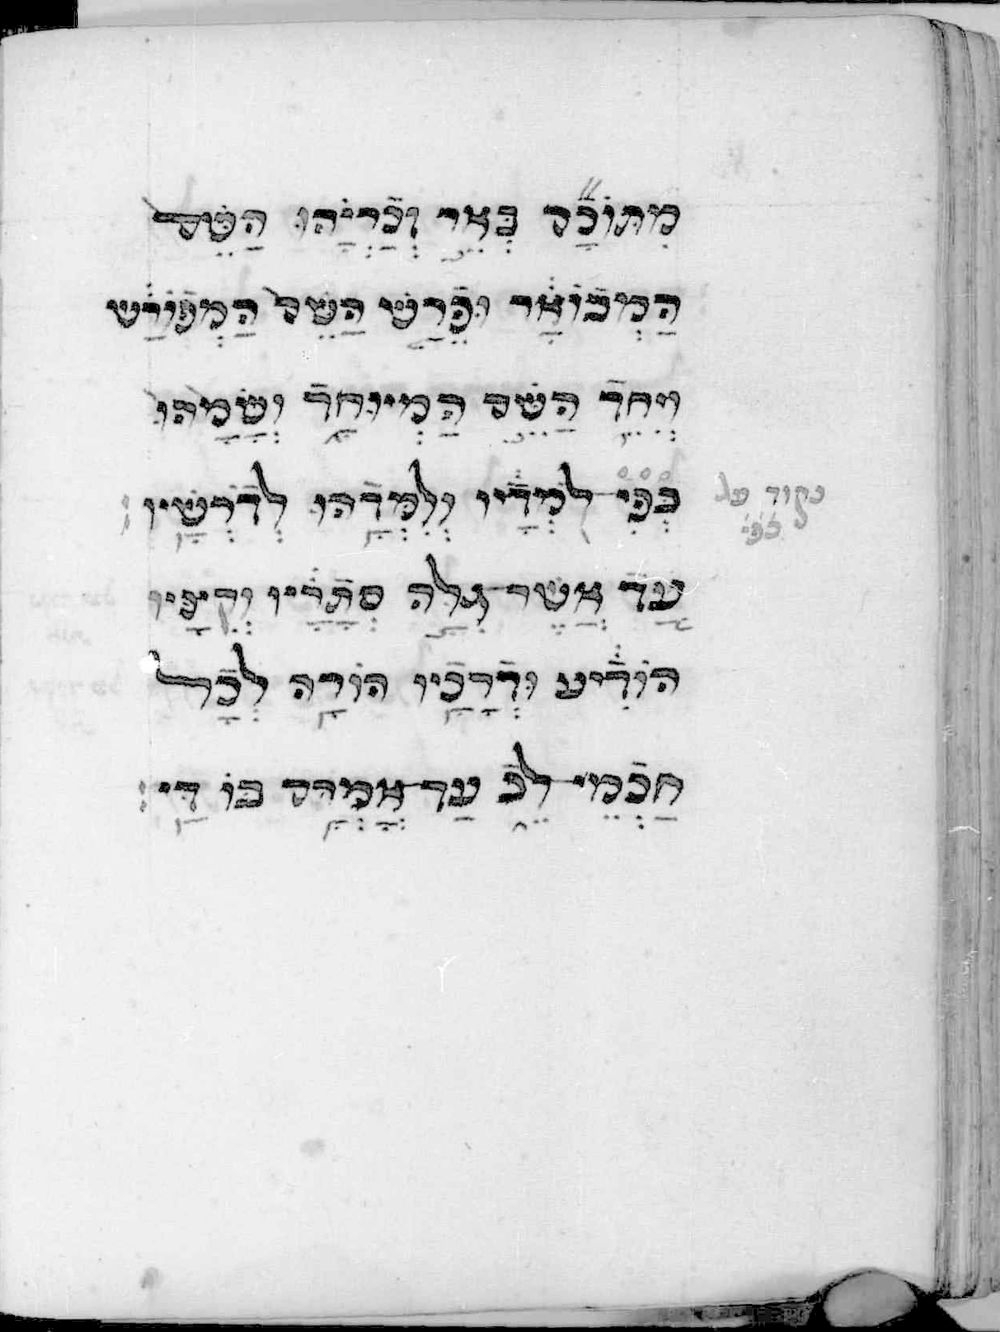 מִתּוֹכָם בְּאֵר וְכֹרְיָהוּ הַשֵּׁם
הַמְבוֹאָר וּפֵרַשׁ הַשֵּׁם הַמְפוֹרָשׁ
וְיִחֵד הַשֵּׁם הַמְיוּחָד וְשָׂמָהוּ
כְּפִי לֹמְדָיו וְלִמְּדָהוּ לְדֹרְשָׁיו :
נקוד על
כפי
עַד אֲשֶׁר גִּלָּה סְתָרָיו וְקִיצָּיו
הוֹדִיעַ וּדְרָכָיו הוֹרָה לְכָל
חַכְמֵי לֵב עַד אָמְרָם בּוֹ דַי :